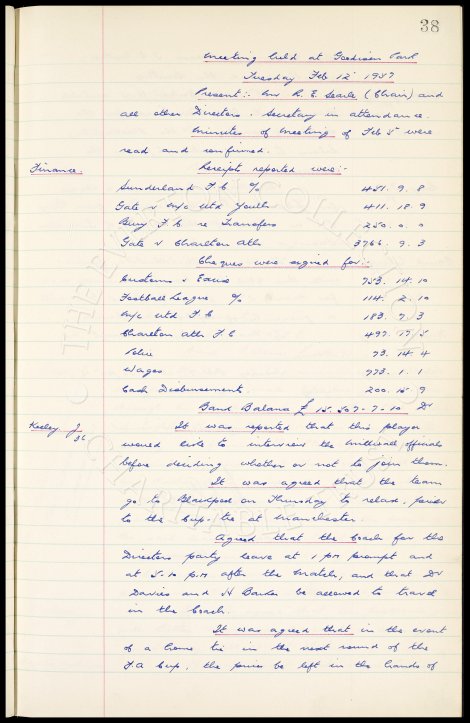 38
Meeting held at Goodison Park
Tuesday Feb 12 1957
Present:- Mr R. E. Searle (Chair) and
all other Directors. Secretary in attendance.
Minutes of meeting of Feb 5 were
read and confirmed.
Finance. Receipts reported were:-
Sunderland F C % 451. 9. 8
Gate v M/c Utd Youth 411. 18. 9
Bury F. C. re Transfers 250. 0. 0
Gate v Charlton Ath 3766. 9. 3
Cheques were signed for:-
Customs & Excise 753. 14. 10
Football League % 114. 2. 10
M/c Utd F C 183. 7. 3
Charlton Ath F C 497. 17. 5
Police 73. 14. 4
Wages 773. 1. 1
Cash Disbursements. 200. 15. 9
Bank Balance £ 15.507-7-10 Dr
Keeley. J It was reported that this player
would like to interview the Millwall officials
before deciding whether or not to join them.
It was agreed that the team
go to Blackpool on Thursday to relax, prior
to the Cup-tie at Manchester.
Agreed that the Coach for the
Directors party leave at 1 pm prompt and
at 5-10 p.m after the match, and that Dr
Davies and H Barker be allowed to travel
in the Coach.
It was agreed that in the event
of a home tie in the next round of the
F.A Cup, the prices be left in the hands of
THE EVERTON COLLECTION
CHARITABLE